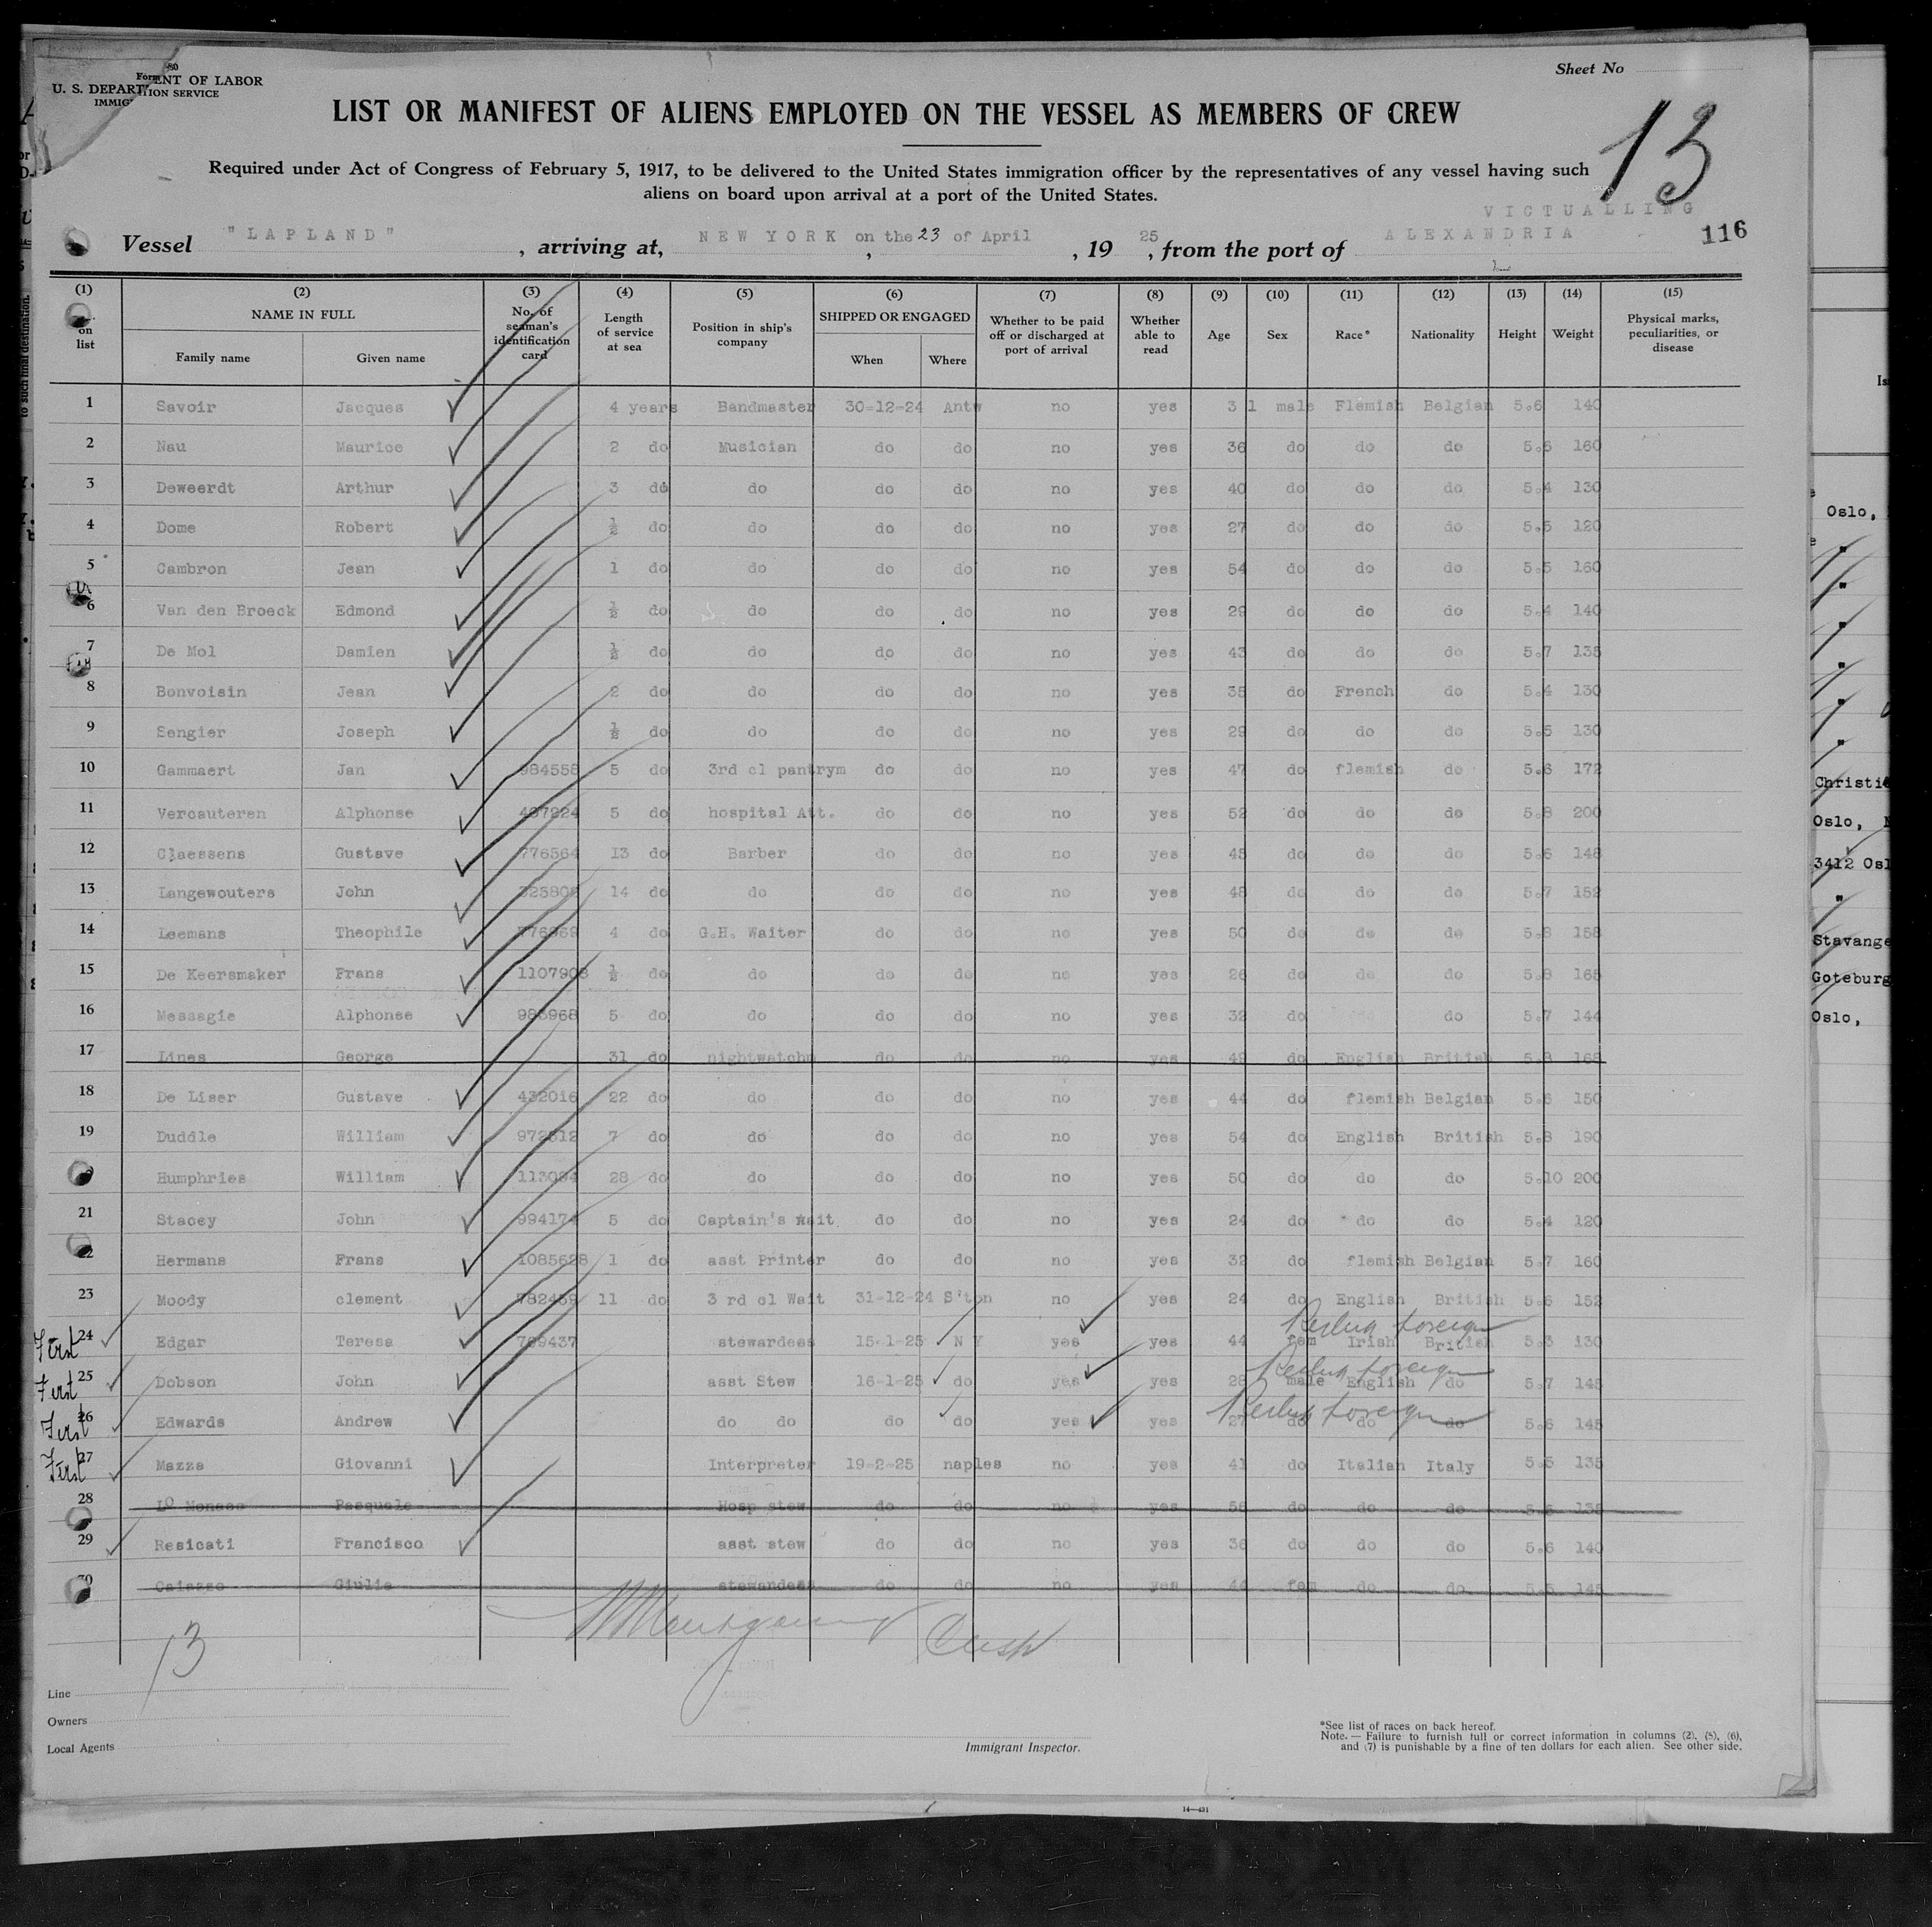 Form 680
U. S. DEPARTMENT OF LABOR
IMMIGRATION SERVICE
Sheet No
13
LIST OR MANIFEST OF ALIENS EMPLOYED ON THE VESSEL AS MEMBERS OF CREW
Required under Act of Congress of February 5, 1917, to be delivered to the United States immigration officer by the representatives of any vessel having such
aliens on board upon arrival at a port of the United States.
VICTUALLING
Vessel "LAPLAND", arriving at, NEW YORK on the 23 of April, 1925, from the port of ALEXANDRIA 116
(1) (2) (3) (4) (5) (6) (7) (8) (9) (10) (11) (12) (13) (14) (15)
on list NAME IN FULL Family name Given name No. of seaman's identification card Length of service at sea Position in ship's company SHIPPED OR ENGAGED When Where Whether to be paid off or discharged at port of arrival Whether able to read Age Sex Race* Nationality Height Weight Physical marks, peculiarities, or disease
1 Savoir Jacques 4 years Bandmaster 30-12-24 Antw no yes 31 male Flemish Belgian 5.6 140
2 Nau Maurice 2 do Musician do do no yes 36 do do do 5.6 160
3 Deweerdt Arthur 3 do do do do no yes 40 do do do 5.4 130
4 Dome Robert ½ do do do do no yes 27 do do do 5.5 120
5 Cambron Jean 1 do do do do no yes 54 do do do 5.5 160
6 Van den Broeck Edmond ½ do do do do no yes 29 do do do 5.4 140
7 De Mol Damien ½ do do do do no yes 43 do do do 5.7 135
8 Bonvoisin Jean 2 do do do do no yes 35 do French do 5.4 130
9 Sengier Joseph ½ do do do do no yes 29 do do do 5.5 130
10 Gammaert Jan 984558 5 do 3rd cl pantrym do do no yes 47 do flemish do 5.6 172
11 Vercauteren Alphonse 497224 5 do hospital Att. do do no yes 52 do do do 5.8 200
12 Claessens Gustave 776564 13 do Barber do do no yes 45 do do do 5.6 148
13 Langewouters John 14 do do do do no yes 48 do do do 5.7 152
14 Leemans Theophile 4 do G.H. Waiter do do no yes 50 do do do 5.8 158
15 De Keersmaker Frans 1107908 ½ do do do do no yes 26 do do do 5.8 165
16 Messagie Alphonse 985968 5 do do do do no yes 32 do do 5.7 144
17 Lines George 31 do nightwatchm do do no yes 49 do English British 5.8 168
18 De Liser Gustave 432016 22 do do do do no yes 44 do flemish Belgian 5.6 150
19 Duddle William 972512 7 do do do do no yes 54 do English British 5.8 190
Humphries William 113094 28 do do do do no yes 50 do do do 5.10 200
21 Stacey John 994174 5 do Captain's Wait do do no yes 24 do do do 5.4 120
22 Hermans Frans 1085628 1 do asst Printer do do no yes 32 do flemish Belgian 5.7 160
23 Moody clement 782459 11 do 3 rd cl Wait 31-12-24 S'ton no yes 24 do English British 5.6 152
First 24 Edgar Teresa 799437 stewardess 15-1-25 N Y yes yes 44 fem Irish British 5.3 130 Reship foreign
First 25 Dobson John asst Stew 16-1-25 do yes yes 28 male English do 5.7 145 Reship foreign
First 26 Edwards Andrew do do do do yes yes 27 do do do 5.6 145 Reship foreign
First 27 Mazza Giovanni Interpreter 19-2-25 naples no yes 41 do Italian Italy 5.5 135
28 Lo Monaco Pasquale Hosp stew do do no yes 56 do do do 5.6 138
29 Resicati Francisco asst stew do do no yes 36 do do do 5.6 140
30 Caiazzo Giulia stewardess do do no yes 44 fem do do 5.5 145
13
Line
Owners
Local Agents
Immigrant Inspector.
*See list of races on back hereof.
Note. — Failure to furnish full or correct information in columns (2), (5), (6),
and (7) is punishable by a fine of ten dollars for each alien. See other side.
14—431
to such final destination.
Oslo,
Christi
Oslo, N
3412 Osl
Stavange
Goteburg
Oslo,